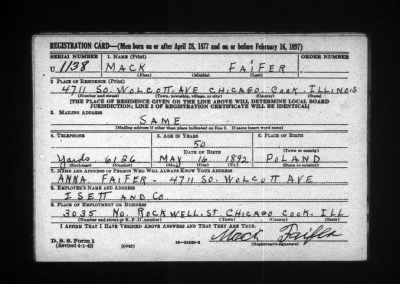 REGISTRATION CARD—(Men born on or after April 28, 1877 and on or before February 16, 1897)
SERIAL NUMBER 1. NAME (Print) ORDER NUMBER
U 1138 MACK FAIFER
(First) (Middle) (Last)
2. PLACE OF RESIDENCE (Print)
4711 SO. WOLCOTT AVE CHICAGO COOK ILLINOIS
(Number and street) (Town, township, village, or city) (County) (State)
[THE PLACE OF RESIDENCE GIVEN ON THE LINE ABOVE WILL DETERMINE LOCAL BOARD
JURISDICTION; LINE 2 OF REGISTRATION CERTIFICATE WILL BE IDENTICAL]
3. MAILING ADDRESS
SAME
(Mailing address if other than place indicated on line 2. If same insert word same)
4. TELEPHONE 5. AGE IN YEARS 6. PLACE OF BIRTH
50
DATE OF BIRTH (Town or county)
Yards 6126 MAY 16 1892 POLAND
(Exchange) (Number) (Mo.) (Day) (Yr.) (State or country)
7. NAME AND ADDRESS OF PERSON WHO WILL ALWAYS KNOW YOUR ADDRESS
ANNA FAIFER - 4711 SO- WOLCOTT AVE
8. EMPLOYER'S NAME AND ADDRESS
ISETT AND CO
9. PLACE OF EMPLOYMENT OR BUSINESS
3035 NO. ROCKWELL. ST. CHICAGO COOK. ILL
(Number and street or R. F. D. number) (Town) (County) (State)
I AFFIRM THAT I HAVE VERIFIED ABOVE ANSWERS AND THAT THEY ARE TRUE.
D. S. S. Form 1
(Revised 4-1-42) (over) Mack Faifer
(Registrant's signature)